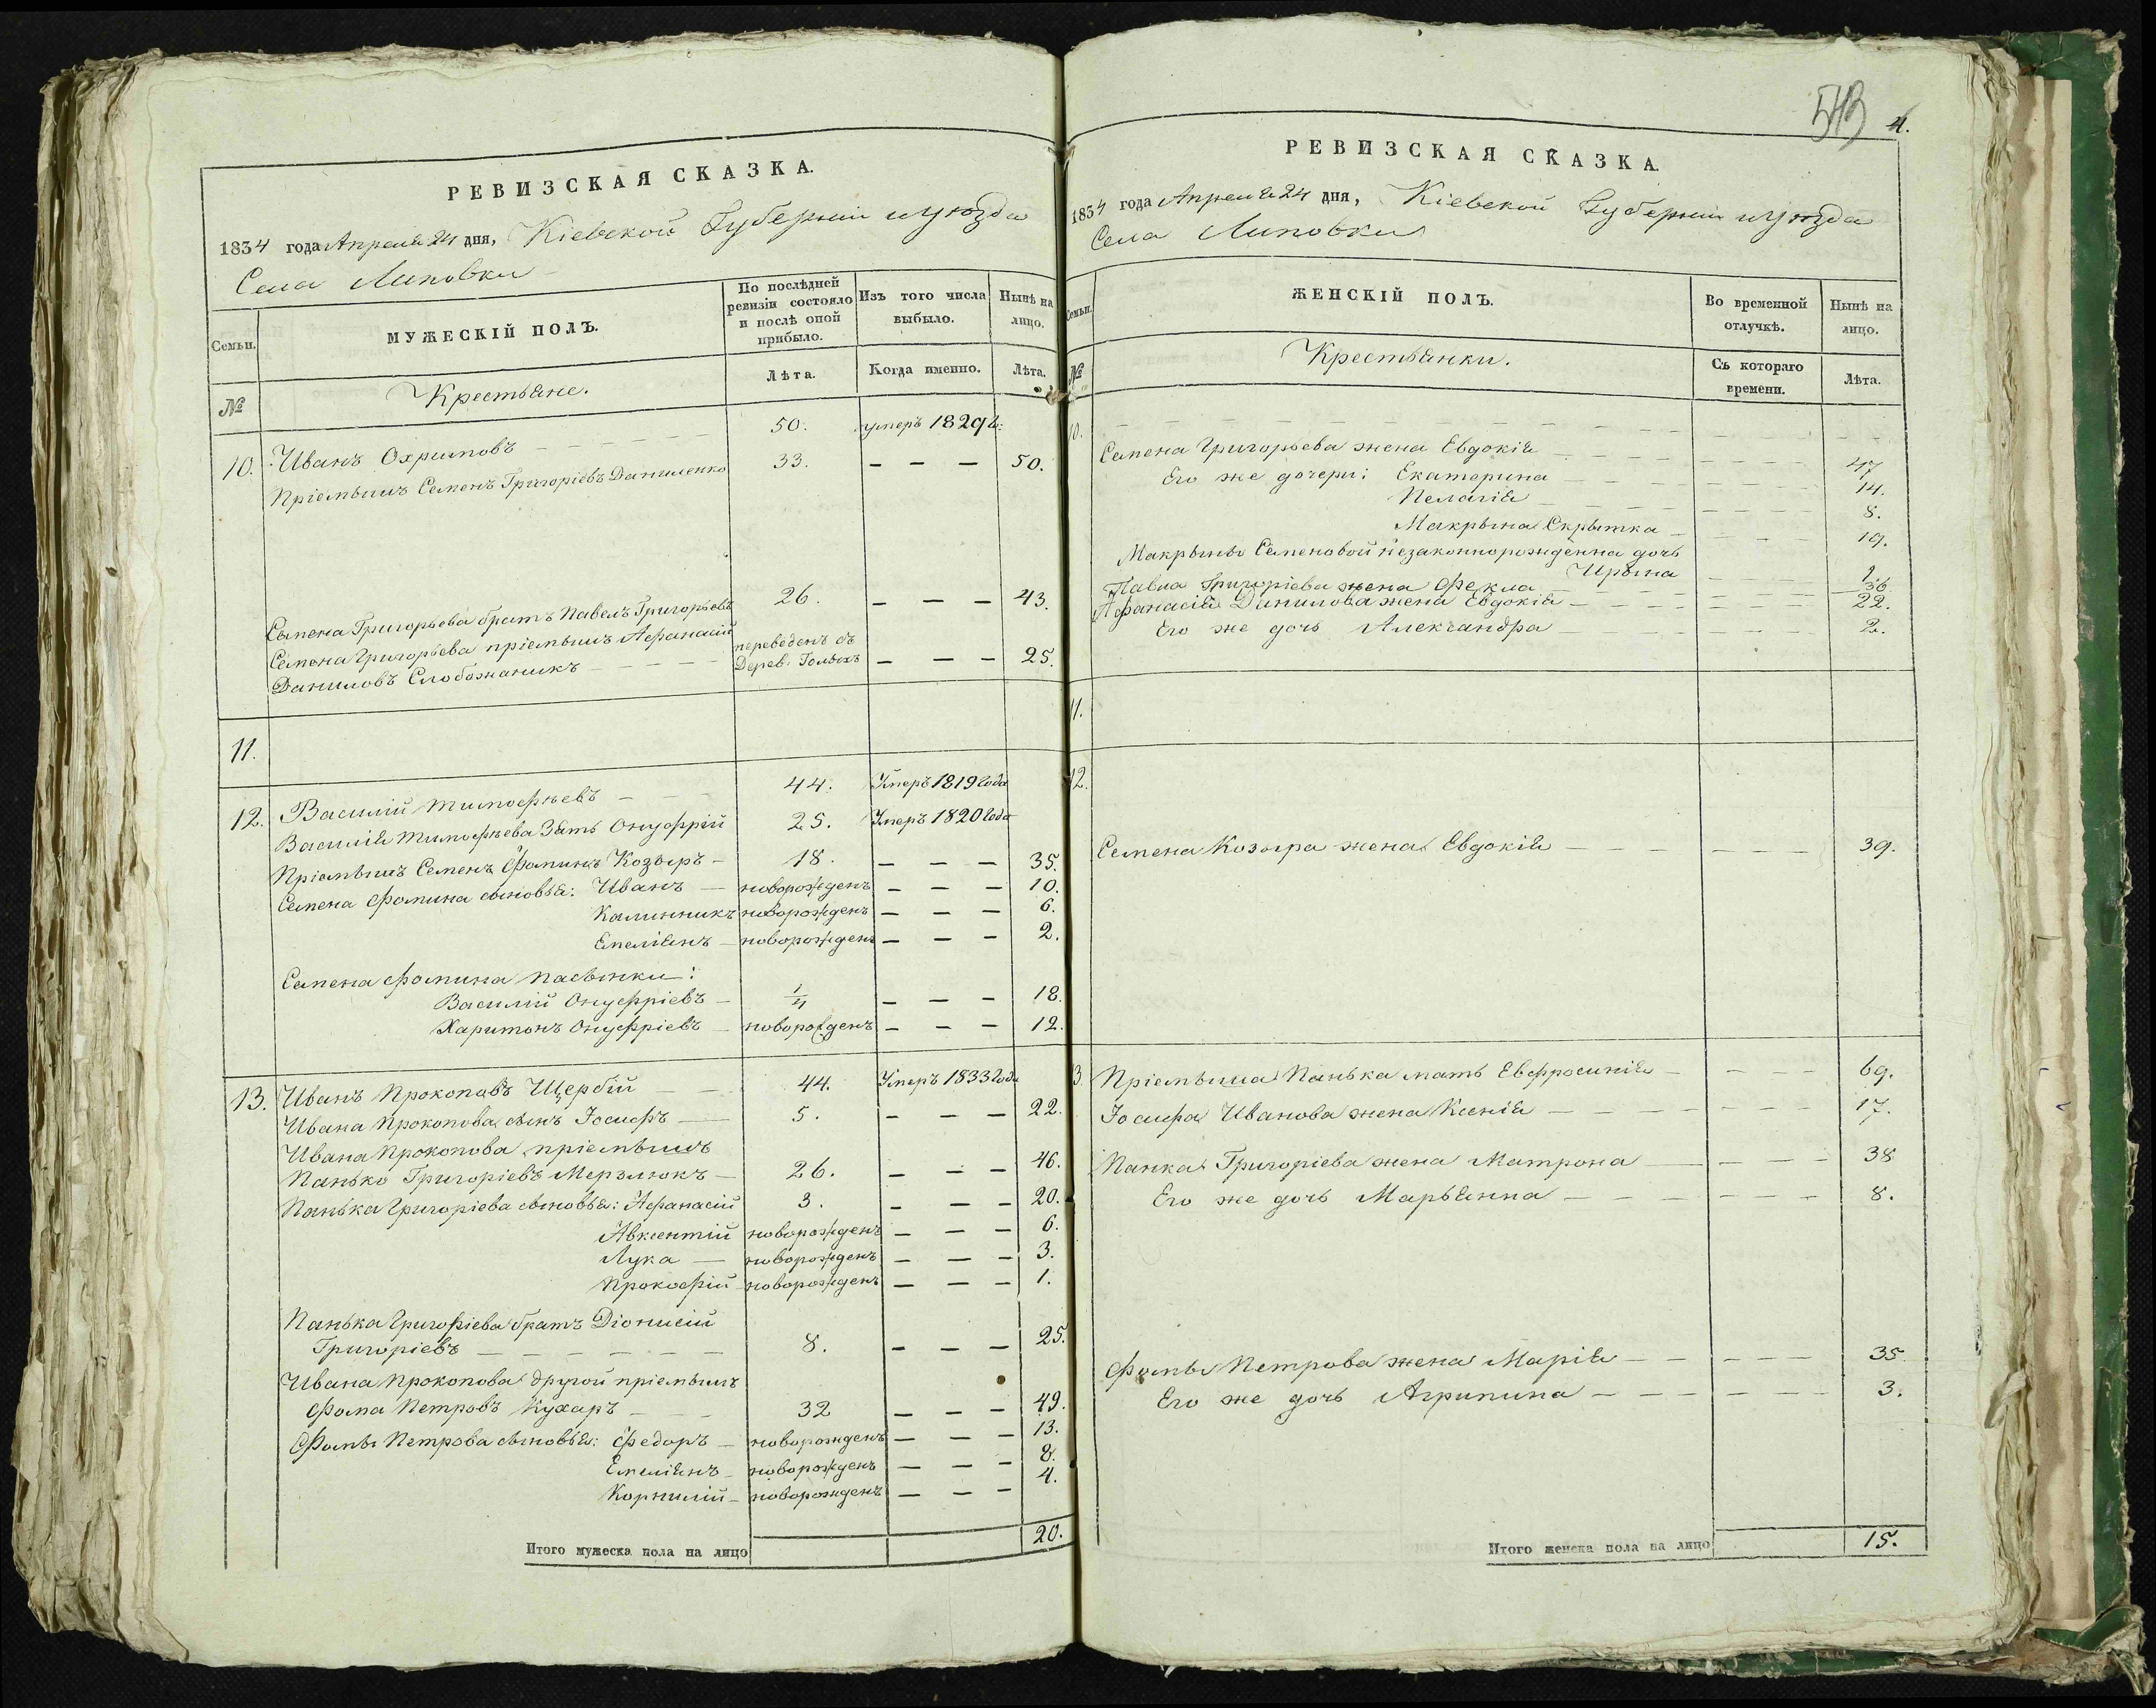 РЕВИЗСКАЯ СКАЗКА.
1834 года Апреля 24 дня, Кіевской Губерніи и уѣзда
Села Липовки
Семьи.
МУЖЕСКІЙ ПОЛЪ.
По послѣдней ревизіи состояло и послѣ оной прибыло.
Изъ того числа выбыло.
Нынѣ на лицо.
№
Крестьяне.
Лѣта.
Когда именно.
Лѣта.
10. Иванъ Охримовъ — 50. умеръ 1829 г:
Пріемышъ Семенъ Григоріевъ Даниленко 33. — — — 50.
Семена Григорьева братъ Павелъ Григорьевъ 26. — — — 43.
Семена Григорьева пріемышъ Афанасій
Даниловъ Слобожаникъ — переведенъ съ Дерев. — — — 25.
11.
12. Василій Тимофѣевъ — 44. Умеръ 1819 года
Василія Тимофѣева Зять Онуфрій 25. Умеръ 1820 года
Пріемышъ Семенъ Фоминъ Козыръ — 18. — — — 35.
Семена Фомина сыновья: Иванъ — новорожденъ — — — 10.
Калинникъ новорожденъ — — — 6.
Емеліянъ — новорожденъ — — — 2.
Семена Фомина пасынки:
Василій Онуфріевъ — 1/4 — — — 18.
Харитонъ Онуфріевъ — новорожденъ — — — 12.
13. Иванъ Прокоповъ Щербій — 44. Умеръ 1833 года
Ивана Прокопова сынъ Іосифъ — 5. — — — 22.
Ивана Прокопова пріемышъ
Панько Григоріевъ Мерзлюкъ — 26. — — — 46.
Панька Григоріева сыновья: Афанасій 3. — — — 20.
Авксентій новорожденъ — — — 6.
Лука — новорожденъ — — — 3.
Прокофій новорожденъ — — — 1.
Панька Григоріева братъ Діонисій
Григоріевъ — — — 8. — — — 25.
Ивана Прокопова другой пріемышъ
Фома Петровъ Кухаръ — 32 — — — 49.
Фомы Петрова сыновья: Федоръ — новорожденъ — — — 13.
Емеліянъ — новорожденъ — — — 8.
Корнилій — новорожденъ — — — 4.
Итого мужеска пола на лицо 20.
513
4.
РЕВИЗСКАЯ СКАЗКА.
1834 года Апреля 24 дня, Кіевской Губерніи и уѣзда
Села Липовки
Семьи.
ЖЕНСКІЙ ПОЛЪ.
Во временной отлучкѣ.
Нынѣ на лицо.
№
Крестьянки.
Съ котораго времени.
Лѣта.
10. — — —
Семена Григорьева жена Евдокія — 47
Его же дочери: Екатерина — 14.
Пелагія — 8.
Макрына Скрытка — 19.
Макрыны Семеновой незаконнорожденна дочь
Ирына — 1.
Павла Григоріева жена Фекла — 36
Афанасія Данилова жена Евдокія — 22.
Его же дочь Александра — 2.
11.
12.
Семена Козыра жена Евдокія — 39.
3. Пріемыша Панька мать Евфросинія — 69.
Іосифа Иванова жена Ксенія — 17.
Панка Григоріева жена Матрона — 38
Его же дочь Марьянна — 8.
Фомы Петрова жена Марія — 35
Его же дочь Агрипина — 3.
Итого женска пола на лицо 15.